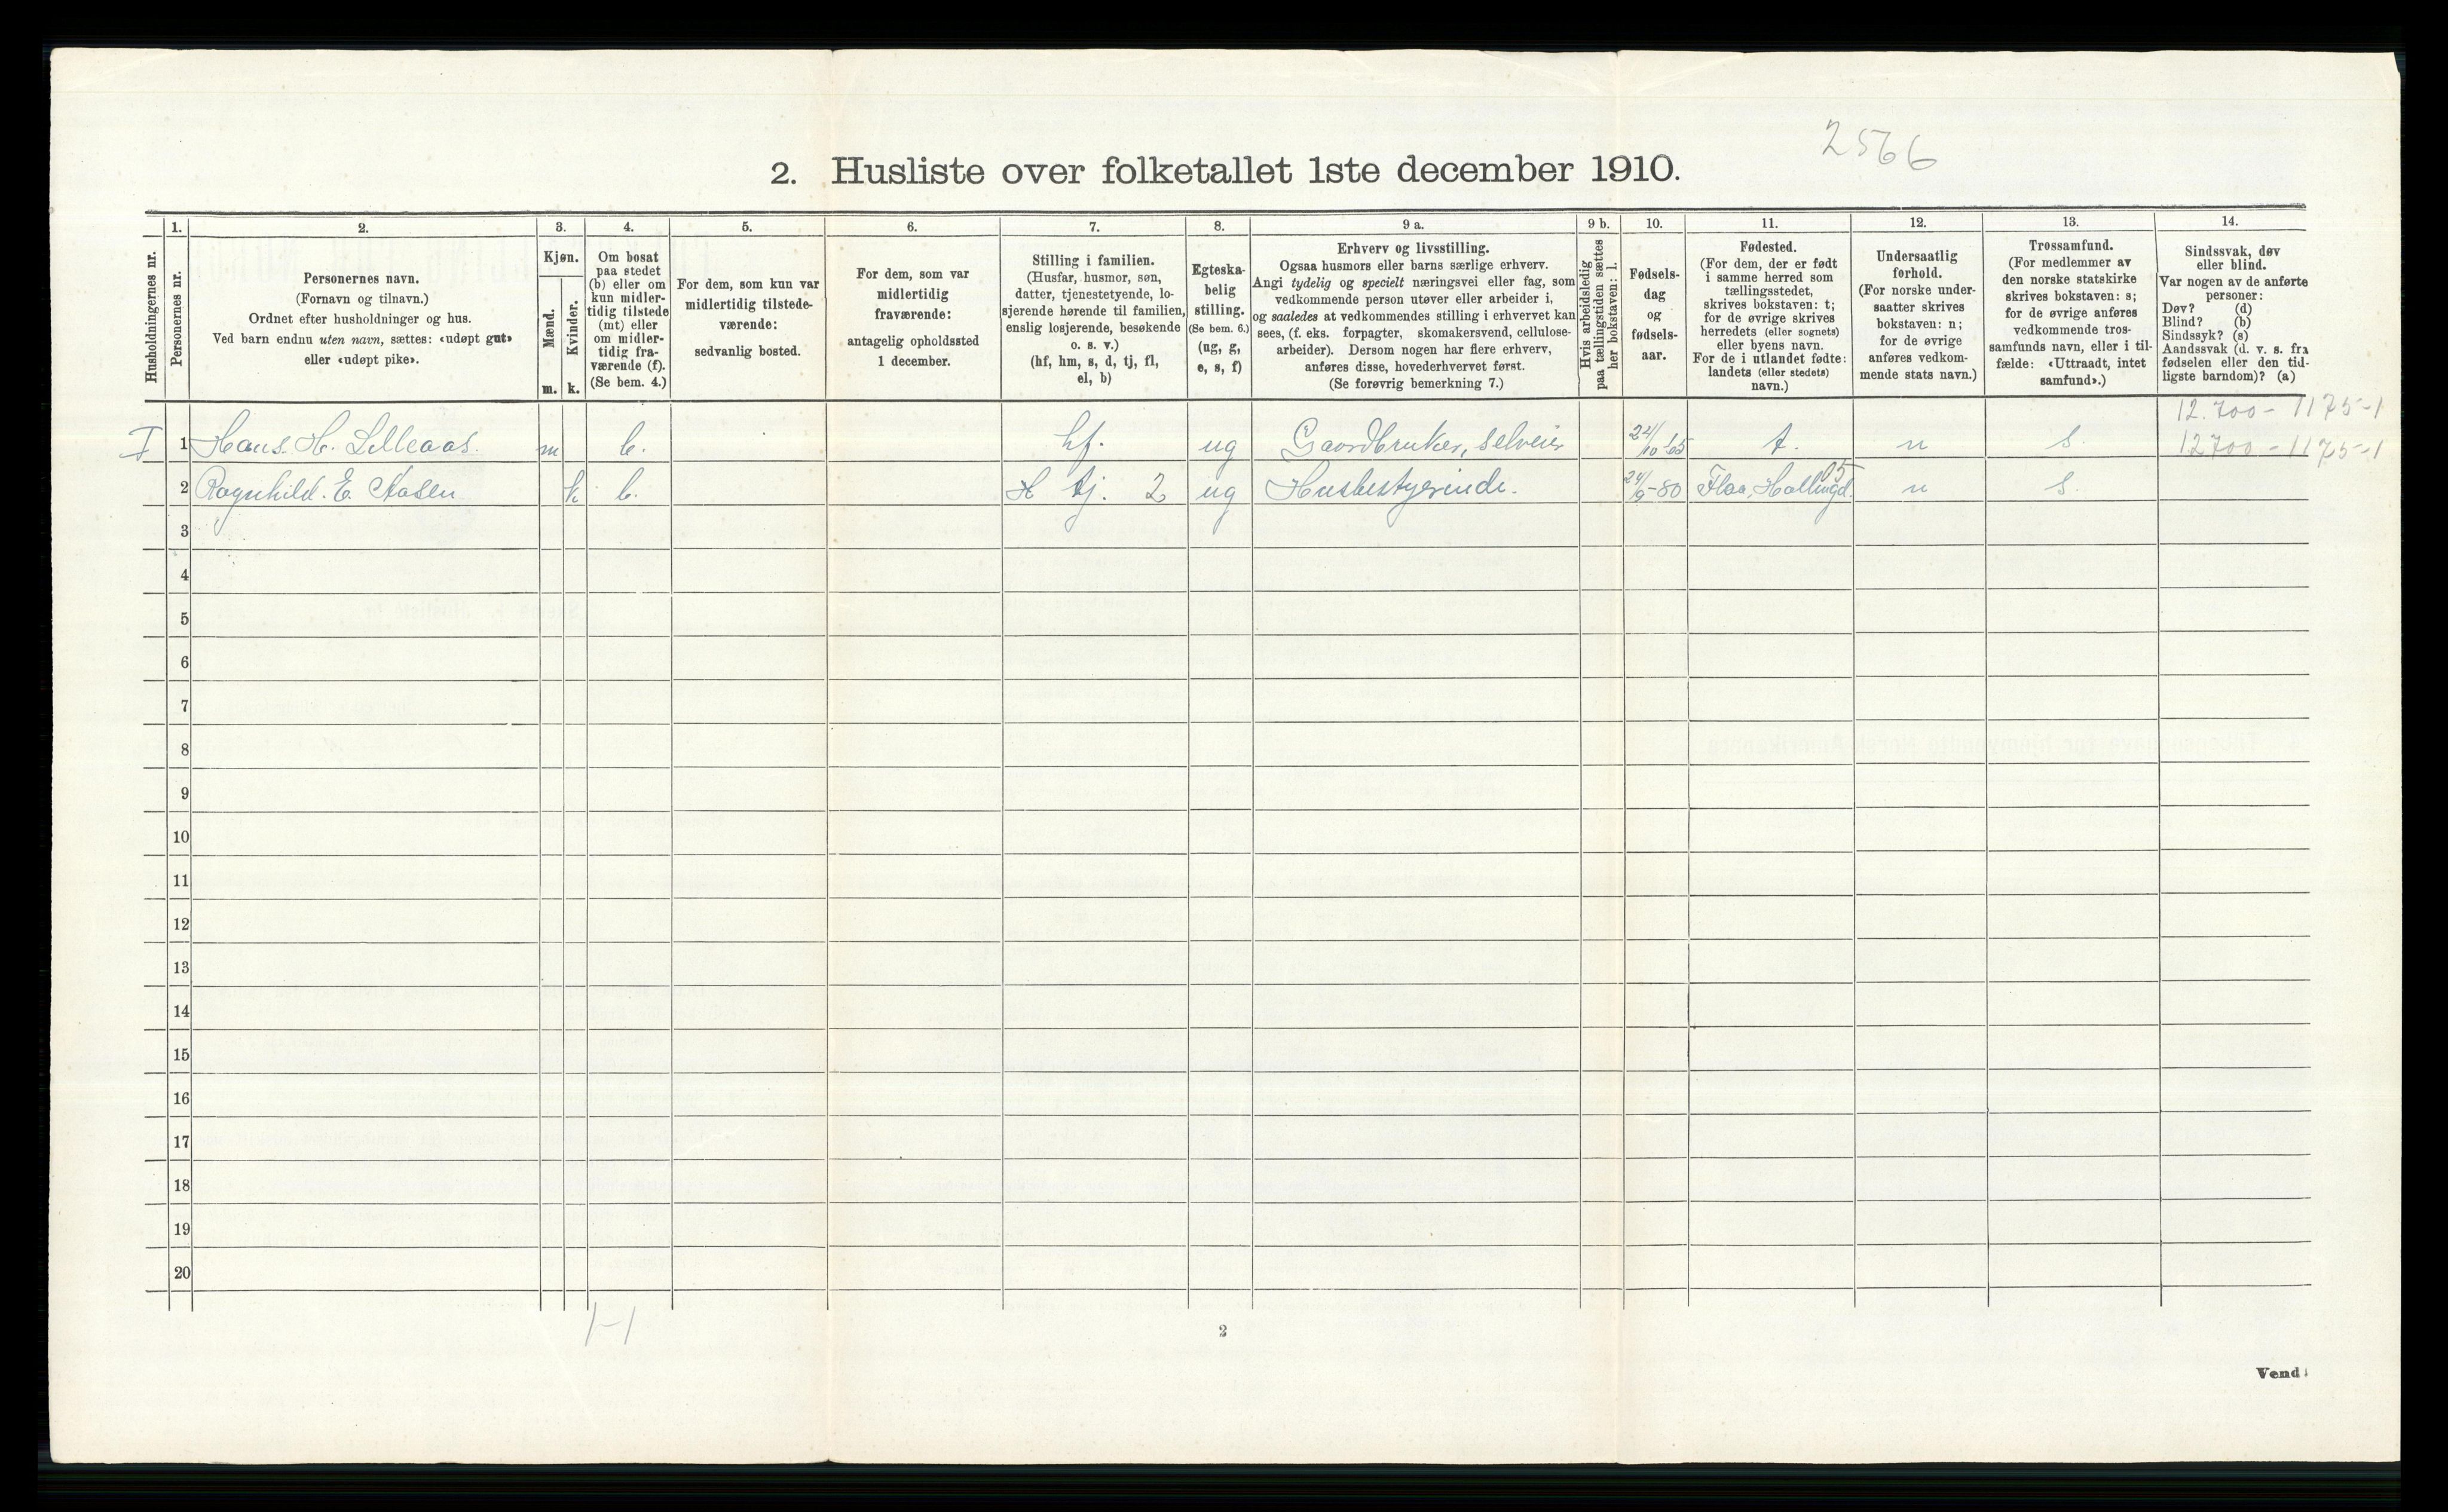 2566
2. Husliste over folketallet 1ste december 1910.
Husholdningernes nr.
1.
Personernes nr.
2.
Personernes navn.
(Fornavn og tilnavn.)
Ordnet efter husholdninger og hus.
Ved barn endnu uten navn, sættes: «udøpt gut»
eller «udøpt pike».
3.
Kjøn.
Mænd.
Kvinder.
m. k.
4.
Om bosat
paa stedet
(b) eller om
kun midler-
tidig tilstede
(mt) eller
om midler-
tidig fra-
værende (f).
(Se bem. 4.)
5.
For dem, som kun var
midlertidig tilstede-
værende:
sedvanlig bosted.
6.
For dem, som var
midlertidig
fraværende:
antagelig opholdssted
1 december.
7.
Stilling i familien.
(Husfar, husmor, søn,
datter, tjenestetyende, lo-
sjerende hørende til familien,
enslig losjerende, besøkende
o. s. v.)
(hf, hm, s, d, tj, fl,
el, b)
8.
Egteska-
belig
stilling.
(Se bem. 6.)
(ug, g,
e, s, f)
9 a.
Erhverv og livsstilling.
Ogsaa husmors eller barns særlige erhverv.
Angi tydelig og specielt næringsvei eller fag, som
vedkommende person utøver eller arbeider i,
og saaledes at vedkommendes stilling i erhvervet kan
sees, (f. eks. forpagter, skomakersvend, cellulose-
arbeider). Dersom nogen har flere erhverv,
anføres disse, hovederhvervet først.
(Se forøvrig bemerkning 7.)
9 b.
Hvis arbeidsledig
paa tællingstiden sættes
her bokstaven: l.
10.
Fødsels-
dag
og
fødsels-
aar.
11.
Fødested.
(For dem, der er født
i samme herred som
tællingsstedet,
skrives bokstaven: t;
for de øvrige skrives
herredets (eller sognets)
eller byens navn.
For de i utlandet fødte:
landets (eller stedets)
navn.)
12.
Undersaatlig
forhold.
(For norske under-
saatter skrives
bokstaven: n;
for de øvrige
anføres vedkom-
mende stats navn.)
13.
Trossamfund.
(For medlemmer av
den norske statskirke
skrives bokstaven: s;
for de øvrige anføres
vedkommende tros-
samfunds navn, eller i til-
fælde: «Uttraadt, intet
samfund».)
14.
Sindssvak, døv
eller blind.
Var nogen av de anførte
personer:
Døv? (d)
Blind? (b)
Sindssyk? (s)
Aandssvak (d. v. s. fra
fødselen eller den tid-
ligste barndom)? (a)
12.700 - 1175-1
I 1 Hans H. Lilleaas. m b. hf. ug Gaardbruker, selveier 24/10-65 t. n s. 12700 - 1175-1
2 Ragnhild. E. Aasen k b. H tj. 2 ug Husbestyrerinde. 24/9-80 Flaa, Hallingd. 05 n s.
3
4
5
6
7
8
9
10
11
12
13
14
15
16
17
18
19
20
1-1
2
Vend!